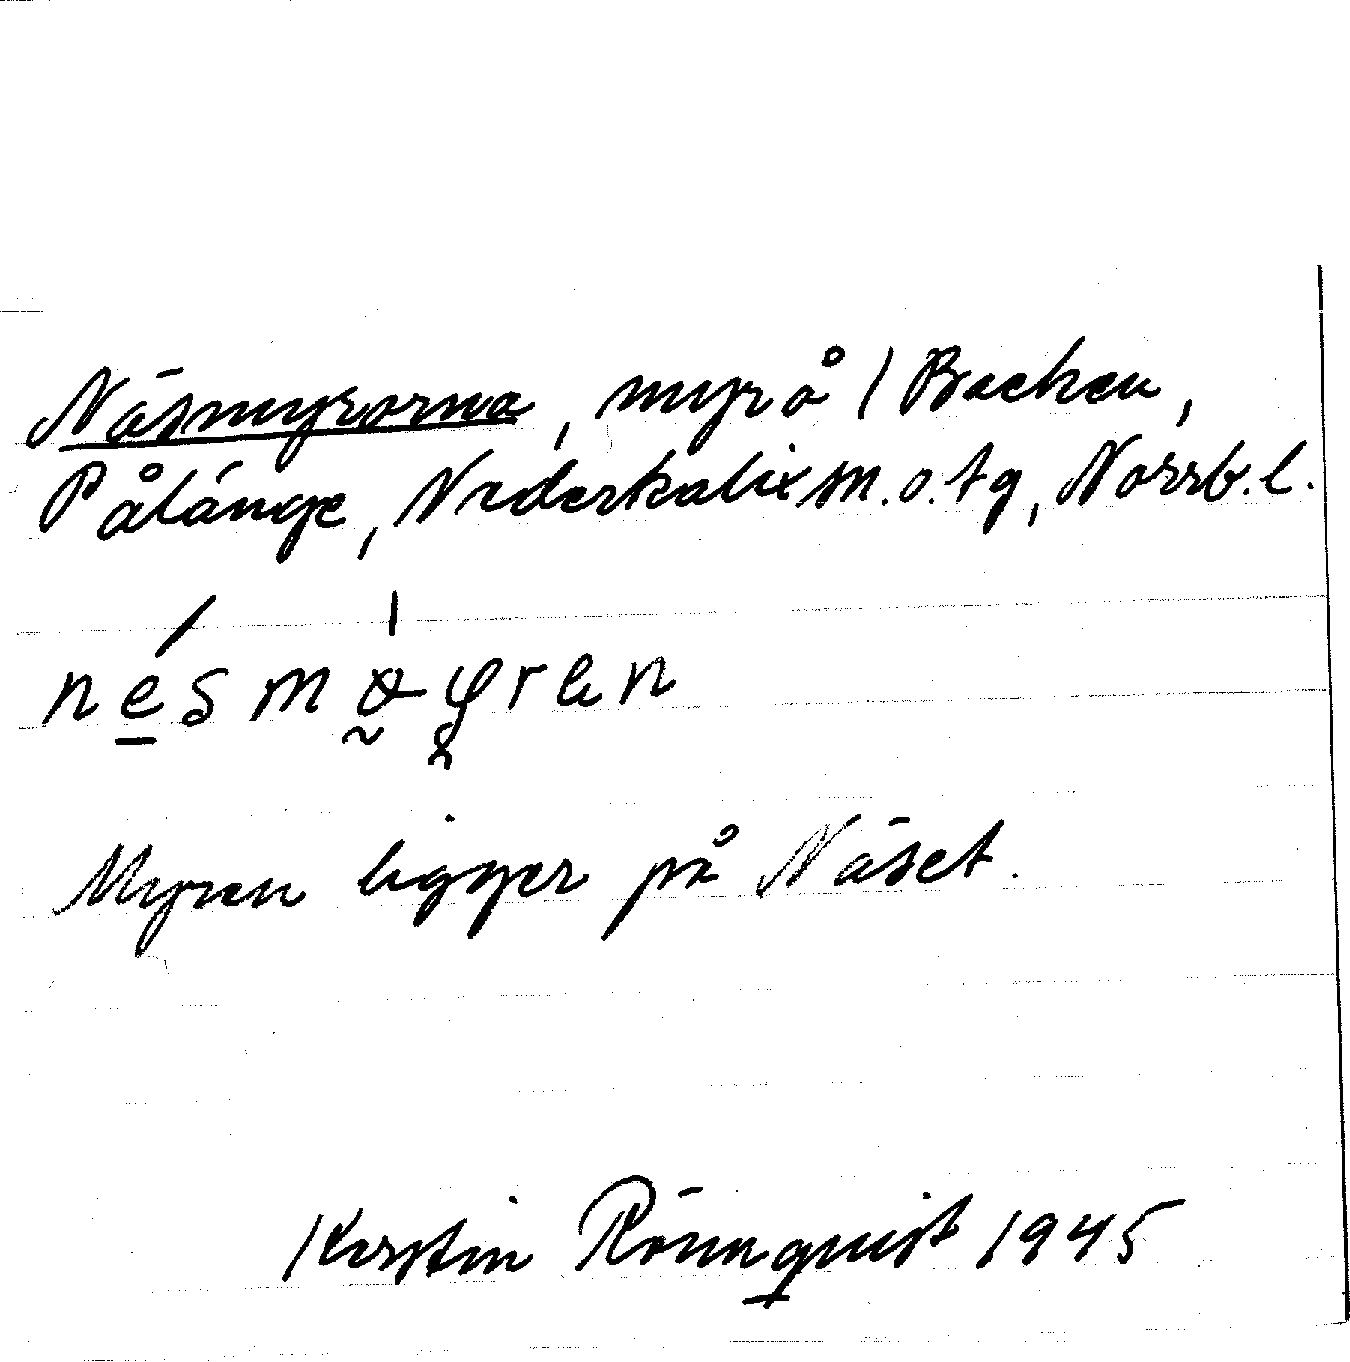 Näsmyrorna, myr å 1 Backen,
Pålänge, Nederkalix sn. o. tg, Norrb. l.
Myren ligger på Näset.
Kerstin Rönnquist 1945